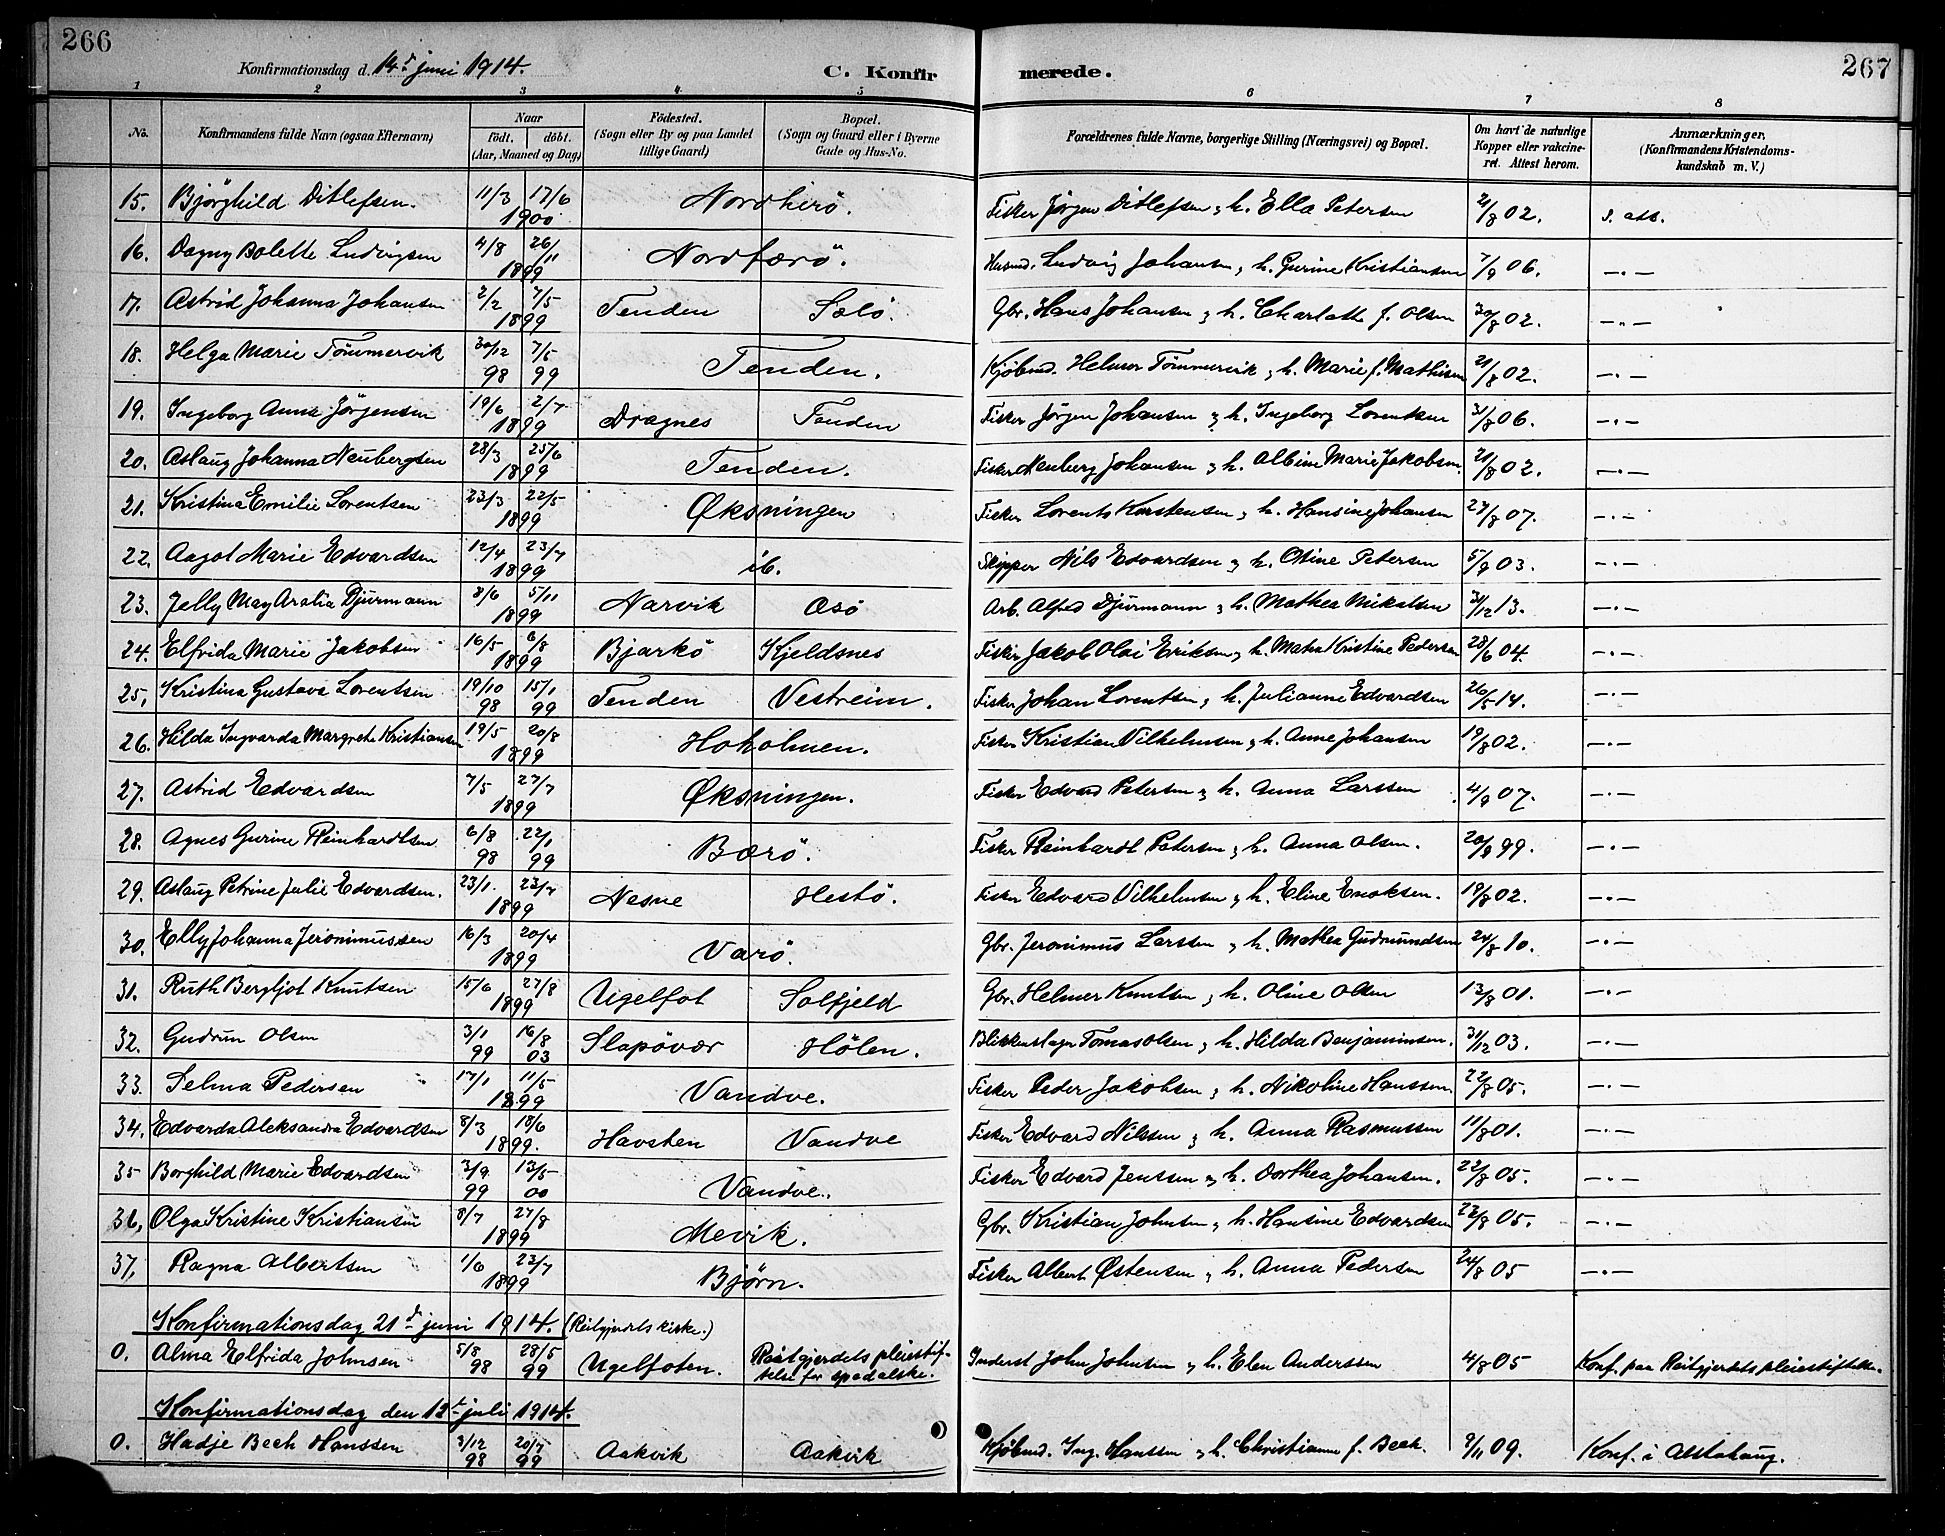 266
267
Konfirmationsdag d. 14de juni 1914.
C. Konfirmerede.
1 2 3 4 5 6 7 8
No. Konfirmandens fulde Navn (ogsaa Efternavn) Naar født. døbt. (Aar, Maaned og Dag) Fødested. (Sogn eller By og paa Landet tillige Gaard) Bopæl. (Sogn og Gaard eller i Byerne Gade og Hus-No. Forældrenes fulde Navne, borgerlige Stilling (Næringsvei) og Bopæl. Om havt de naturlige Kopper eller vakcineret. Attest herom. Anmærkninger, (Konfirmandens Kristendomskundskab m. V.)
15. Bjørghild Ditlefsen. 11/3 17/6 1900 Nordhirö. Fisker Jørgen Ditlefsen & h. Ella Petersen 21/8 02. s. att.
16. Dagny Bolette Ludvigsen 4/8 26/11 1899 Nordfærö. Husmd. Ludvig Johansen & h. Gurine Kristiansen 7/9 06. —„—
17. Astrid Johanna Johansen 2/2 7/5 1899 Tenden Sælö. Gbr. Hans Johansen & h. Charlotte f. Olsen 30/8 02. —„—
18. Helga Marie Tömmervik 30/12 98 7/5 99 Tenden. Kjöbmd. Helmer Tömmervik & h. Marie f. Mathisen 21/8 02. —„—
19. Ingeborg Anna Jørgensen 19/6 2/7 1899 Dragnes Tenden Fisker Jørgen Johansen & h. Ingeborg Lorentsen 31/8 06. —„—
20. Aslaug Johanna Neubergsen 28/3 25/6 1899 Tenden. Fisker Neuberg Johansen & h. Albine Marie Jakobsen. 21/8 02. —„—
21. Kristina Emilie Lorentsen 23/3 22/5 1899 Øksningen Fisker Lorents Karstensen & h. Hansine Johansen 27/8 07. —„—
22. Aagot Marie Edvardsen 12/4 23/7 1899 ib. Skipper Nils Edvardsen & h. Otine Petersen 5/9 03. —„—
23. Jelly May Aralia Djurmann 8/6 5/11 1899 Narvik Åsö Arb. Alfred Djurmann & h. Mathea Mikalsen 31/12 13. —„—
24. Elfrida Marie Jakobsen 16/5 6/8 1899 Bjarkö Kjeldsnes Fisker Jakob Olai Eriksen & h. Matea Kristine Pedersen 28/6 04. —„—
25. Kristina Gustava Lorentsen 19/10 98 15/1 99 Tenden Vestreim. Fisker Johan Lorentsen & h. Julianne Edvardsen 26/5 14. —„—
26. Hilda Ingvarda Margrete Kristiansen 19/5 20/8 1899 Hoholmen. Fisker Kristian Vilhelmsen & h. Anne Johansen 19/8 02. —„—
27. Astrid Edvardsen 7/5 27/7 1899 Øksningen. Fisker Edvard Petersen & h. Anna Larssen 4/9 07. —„—
28. Agnes Gurine Reinhardtsen 6/8 98 22/1 99 Bærö. Fisker Reinhardt Petersen & h. Anna Olsen. 20/9 99. —„—
29. Aslaug Petrine Julie Edvardsen. 23/1 23/7 1899 Nesne Hestö. Fisker Edvard Vilhelmsen & h. Eline Enoksen. 19/8 02. —„—
30. Elly Johanna Jeronimussen 16/3 20/4 1899 Varö. Gbr. Jeronimus Larssen & h. Mathea Gudmundsen 24/8 10. —„—
31. Ruth Bergljot Knutsen 15/6 27/8 1899 Ugelfot Solfjeld Gbr. Helmer Knutsen & h. Oline Olsen 13/8 01. —„—
32. Gudrun Olsen 3/1 99 16/8 03 Slapövær Hölen. Blikkenslager Tomas Olsen & h. Hilda Benjaminsen. 31/12 03. —„—
33. Selma Pedersen 17/1 11/5 1899 Vandve. Fisker Peder Jakobsen & h. Nikoline Hanssen 22/8 05. —„—
34. Edvarda Aleksandra Edvardsen 8/3 18/6 1899. Havsten Vandve Fisker Edvard Nilssen & h. Anna Rasmussen 11/8 01. —„—
35 Borghild Marie Edvardsen 3/9 99 13/5 00 Vandve. Fisker Edvard Jenssen & h. Dorthea Johansen. 22/8 05. —„—
36, Olga Kristine Kristiansen 8/7 27/8 1899 Mevik. Gbr. Kristian Johnsen & h. Hansine Edvardsen 23/8 05. —„—
37, Ragna Albertsen 1/6 23/7 1899 Bjørn. Fisker Albert Østensen & h. Anna Pedersen 24/8 05 —„—
Konfirmationsdag 21de juni 1914. (Reitgjerdets kirke.)
0. Alma Elfrida Johnsen 5/8 98 28/5 99 Ugelfoten. Reitgjerdets pleiestiftelse for spedalske. Inderst John Johnsen & h. Elen Anderssen 4/8 05 Konf. paa Reitgjerdets pleiestiftelse.
Konfirmationsdag den 12te juli 1914.
0. Hadje Beck Hanssen 3/12 98 20/7 99 Aakvik Aakvik Kjöbmd. Ing. Hanssen & h. Christianne f. Beck. 9/11 09. Konf. i Alstahaug.